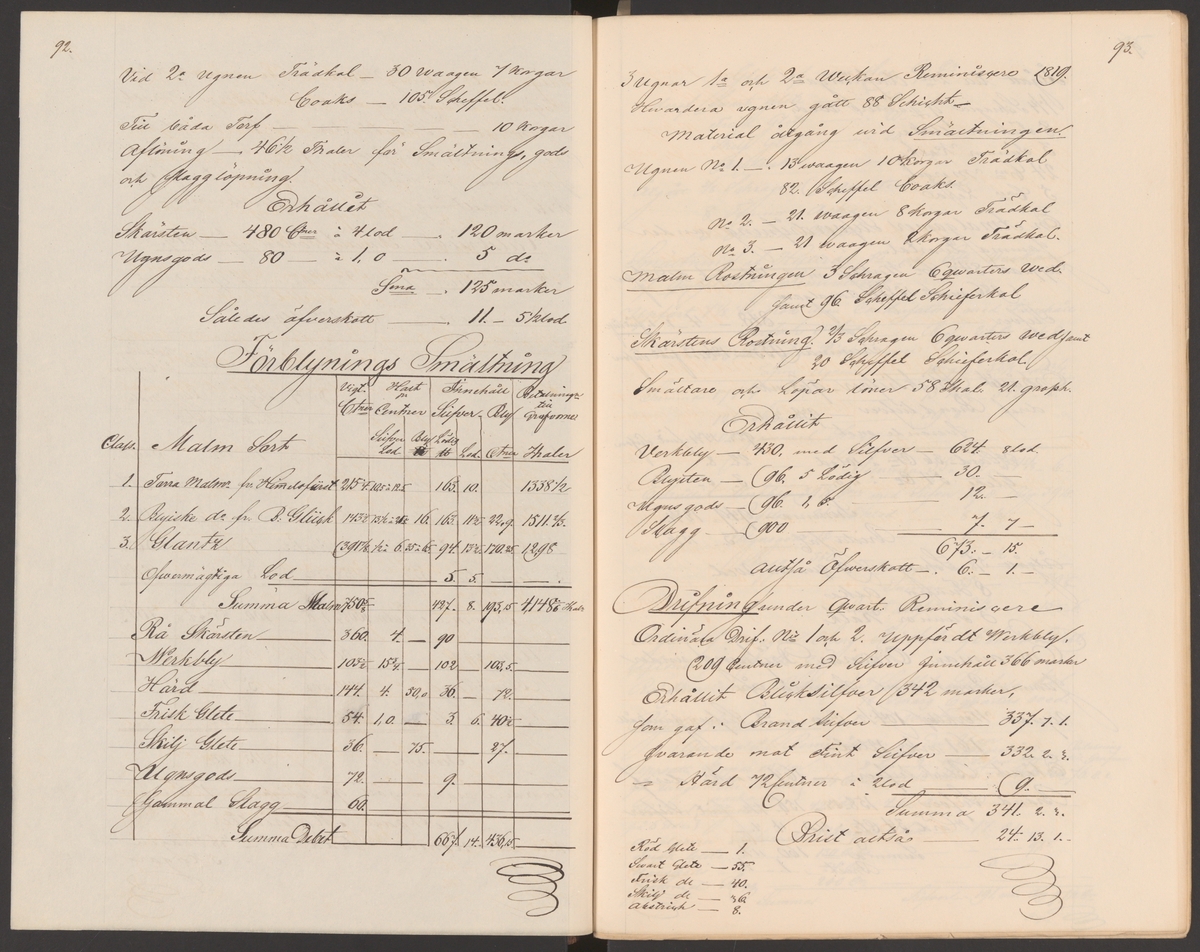 92.
Vid 2a Ugnen Trädkol — 30 Waagen 7 Korgar
Coaks — 105. Scheffel.
Till båda Torf — 10 Korgar
Aflöning — 46½ Thaler för Smältnings, gods
och slagglöpning.
Erhållit
Skärsten — 480 Ctner à 4 lod — 120 marker
Ugnsgods — 80 — à 1, 0 — 5 do
Sma — 125 marker
Således öfverskott — 11. — 5½ lod
Förblynings Smältning
Vigt Halt pr Innehåll Betalnings
Ctner Centner Silfver Bly till Grufvorne
Class. Malm Sort Silfver Lod. Bly Lödig Lod. Ctner Thaler
1. Torra Malmer fr Himelsfürst 215 163. 10. 1338½
2. Blyiske do fr B. Glück 16. 163. 1511⅔
3. Glantz 94. 1298
Öfvermägtiga Lod 5. 5.
Summa Malm 427. 8. 193,15 4148 Thaler
Rå Skärsten 360. 4. — 90
Werkbly 102 — 103,5.
Härd 144. 4. 50,0 36. — 72.
Frisk Glete 54. 1, 0. 3. 6.
Skilj Glete 36. — 75. 27.
Ugnsgods 72. 9.
Gammal Slagg 60.
Summa Debet 667. 14. 436,15
93.
3 Ugnar 1a och 2a Weckan Reminiscere 1819.
Hvardera ugnen gått 88 Schicht —
Material åtgång vid Smältningen.
Ugnen No 1. — 13 Waagen 10 Korgar Trädkol
82. Scheffel Coaks.
No 2. — 21. Waagen 8 Korgar Trädkol
No 3. — 21 Waagen 2 Korgar Trädkol.
Malm Rostningen 3 Schragen 6 qwarters Wed.
samt 96. Scheffel Schieferkol
Skärstens Rostning. ⅔ Schragen 6 qwarters Wed samt
20 Scheffel Schieferkol.
Smältare och Löpar löner 58 Thal. 21. grosch.
Erhållit
Verkbly — 430. med Silfver — 624. 8 lod.
Blysten — 96. 5 Lödig — 30.
Ugnsgods — 96. — 12. —
Slagg — 900 — 7. 7 —
673. — 15.
Altså Öfwerskott — 6. — 1. —
Drifning under Qwart. Reminiscere
Ordinära Drif. No 1 och 2. Uppfördt Werkbly.
209 Centner med Silfver Innehåll 366 marker
Erhållit Blicksilfver 342 marker,
som gaf: Brand Silfver — 337. 7. 1.
svarande mot Fint Silfver — 332. 2. 2.
" Härd 72 Centner à 2 lod — 9. —
Summa 341. 2. 2.
Brist altså — 24. 13. 1. —
Röd Glete — 1.
Svart Glete — 55.
Frisk do — 40.
Skilj do — 36.
Abstrich — 8.